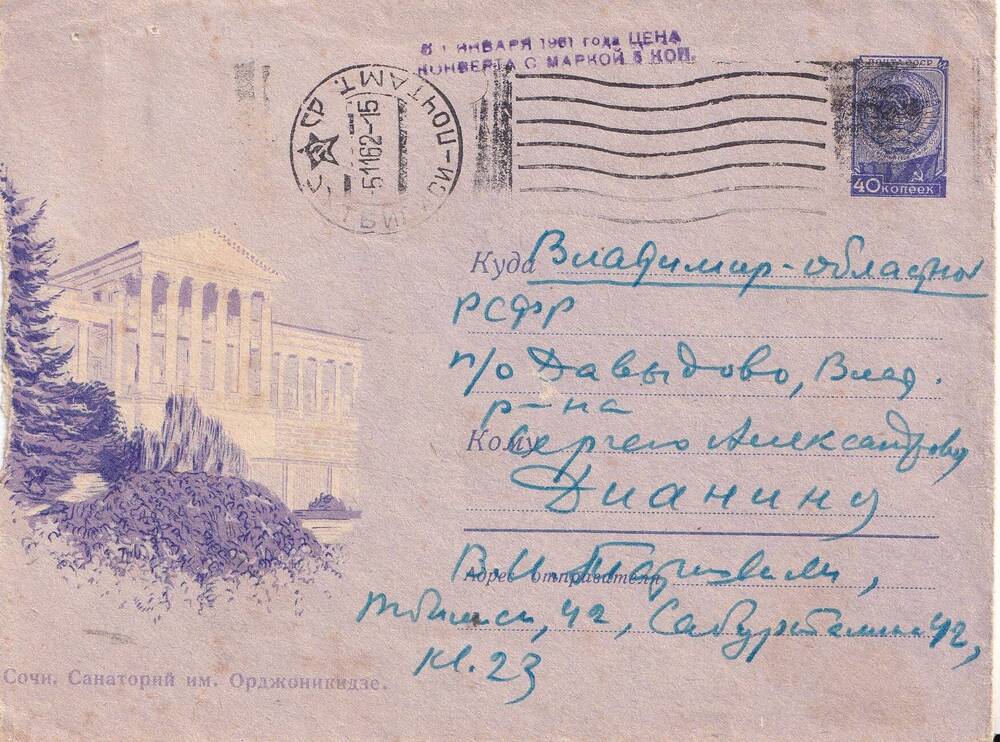 С 1 ЯНВАРЯ 1961 года ЦЕНА
КОНВЕРТА С МАРКОЙ 5 КОП.
ПОЧТА СССР
40 КОПЕЕК
ТБИЛИСИ-ПОЧТАМТ.
-51162-15
Куда Владимир-областной
РСФР
п/о Давыдово, Влад.
р-на
Кому Сергею Александровичу
Дианину
Адрес отправителя
В.И.
Тбилиси, 42,
кв. 23
Сочи. Санаторий им. Орджоникидзе.